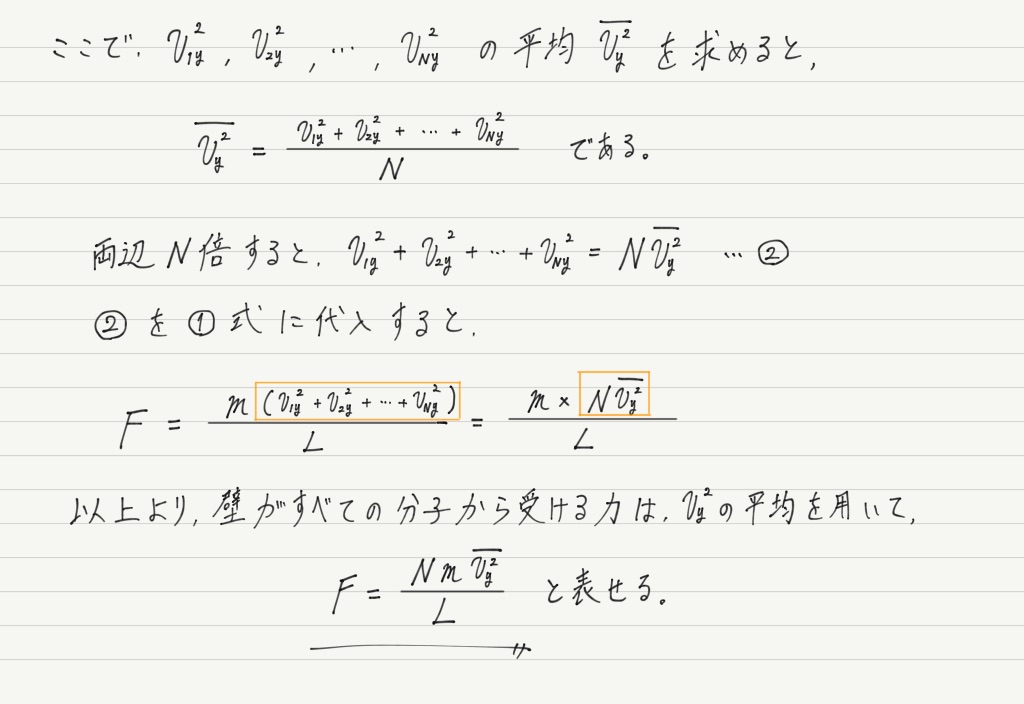 ここで、v₁y², v₂y², …, vNy² の平均 v̅y̅²̅ を求めると,
v̅y̅²̅ = (v₁y² + v₂y² + … + vNy²) / N である。
両辺N倍すると, v₁y² + v₂y² + … + vNy² = N v̅y̅²̅ … ②
②を①式に代入すると,
F = m(v₁y² + v₂y² + … + vNy²) / L = m × N v̅y̅²̅ / L
以上より, 壁がすべての分子から受ける力は, vy²の平均を用いて,
F = N m v̅y̅²̅ / L と表せる。